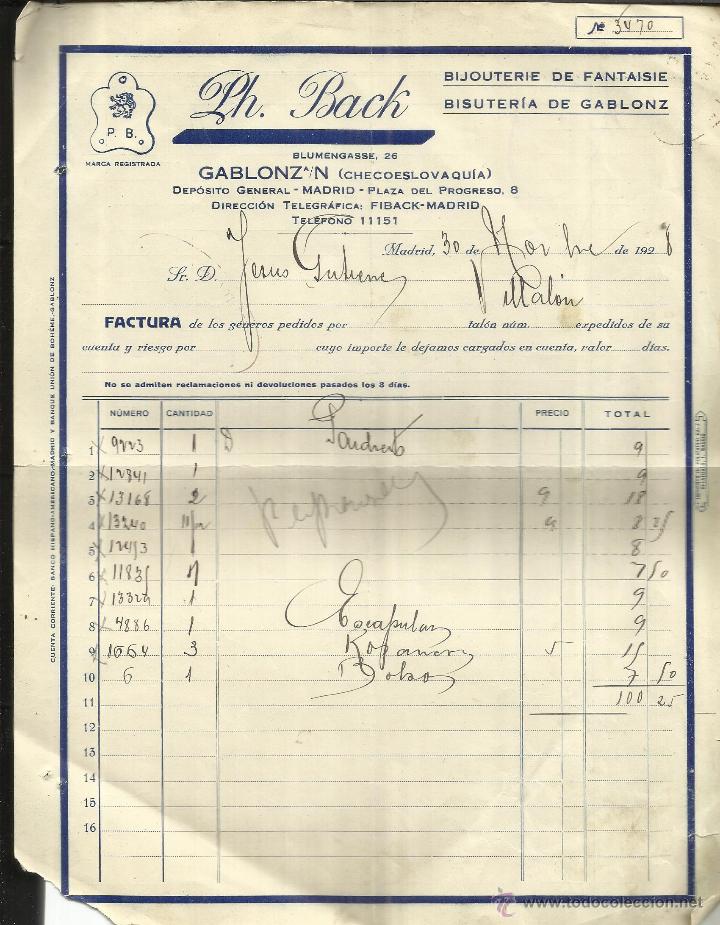 Nº 3470
P. B.
MARCA REGISTRADA
Ph. Back
BIJOUTERIE DE FANTAISIE
BISUTERÍA DE GABLONZ
BLUMENGASSE, 26
GABLONZ A/N (CHECOESLOVAQUÍA)
DEPÓSITO GENERAL - MADRID - PLAZA DEL PROGRESO, 8
DIRECCIÓN TELEGRÁFICA: FIBACK-MADRID
TELÉFONO 11151
Madrid, 30 de Novbre de 1928
Sr. D. Jesus Gutierrez Villalón
FACTURA de los géneros pedidos por talón núm. expedidos de su
cuenta y riesgo por cuyo importe le dejamos cargados en cuenta, valor días.
No se admiten reclamaciones ni devoluciones pasados los 8 días.
NÚMERO CANTIDAD PRECIO TOTAL
1 9223 1 D 9
2 12341 1 9
3 13168 2 9 18
4 13240 9 8 25
5 1 8
6 11835 7 50
7 1 9
8 4886 1 Escapular 9
9 1664 3 5 15
10 6 1 Bolso 7 50
11 100 25
12
13
14
15
16
CUENTA CORRIENTE: BANCO HISPANO-AMERICANO-MADRID Y BANQUE UNION DE BOHÊME-GABLONZ
www.todocoleccion.net